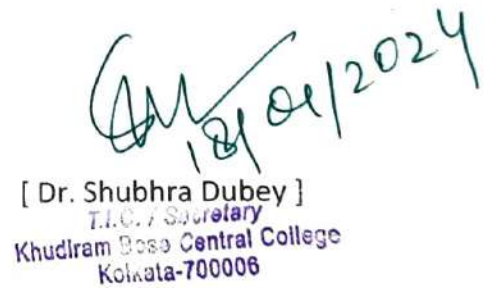 18/01/2024
[ Dr. Shubhra Dubey ]
T.I.C. / Secretary
Khudiram Bose Central College
Kolkata-700006